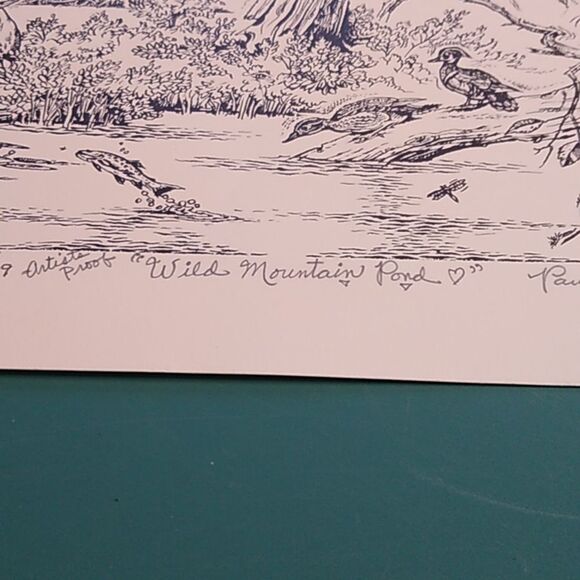 9 Artists Proof "Wild Mountain Pond ♡" Pau